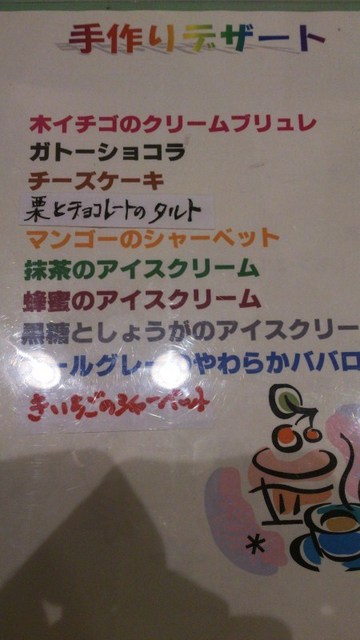 手作りデザート
木イチゴのクリームブリュレ
ガトーショコラ
チーズケーキ
栗とチョコレートのタルト
マンゴーのシャーベット
抹茶のアイスクリーム
蜂蜜のアイスクリーム
黒糖としょうがのアイスクリー
ールグレーのやわらかババロ
きいちごのシャーベット